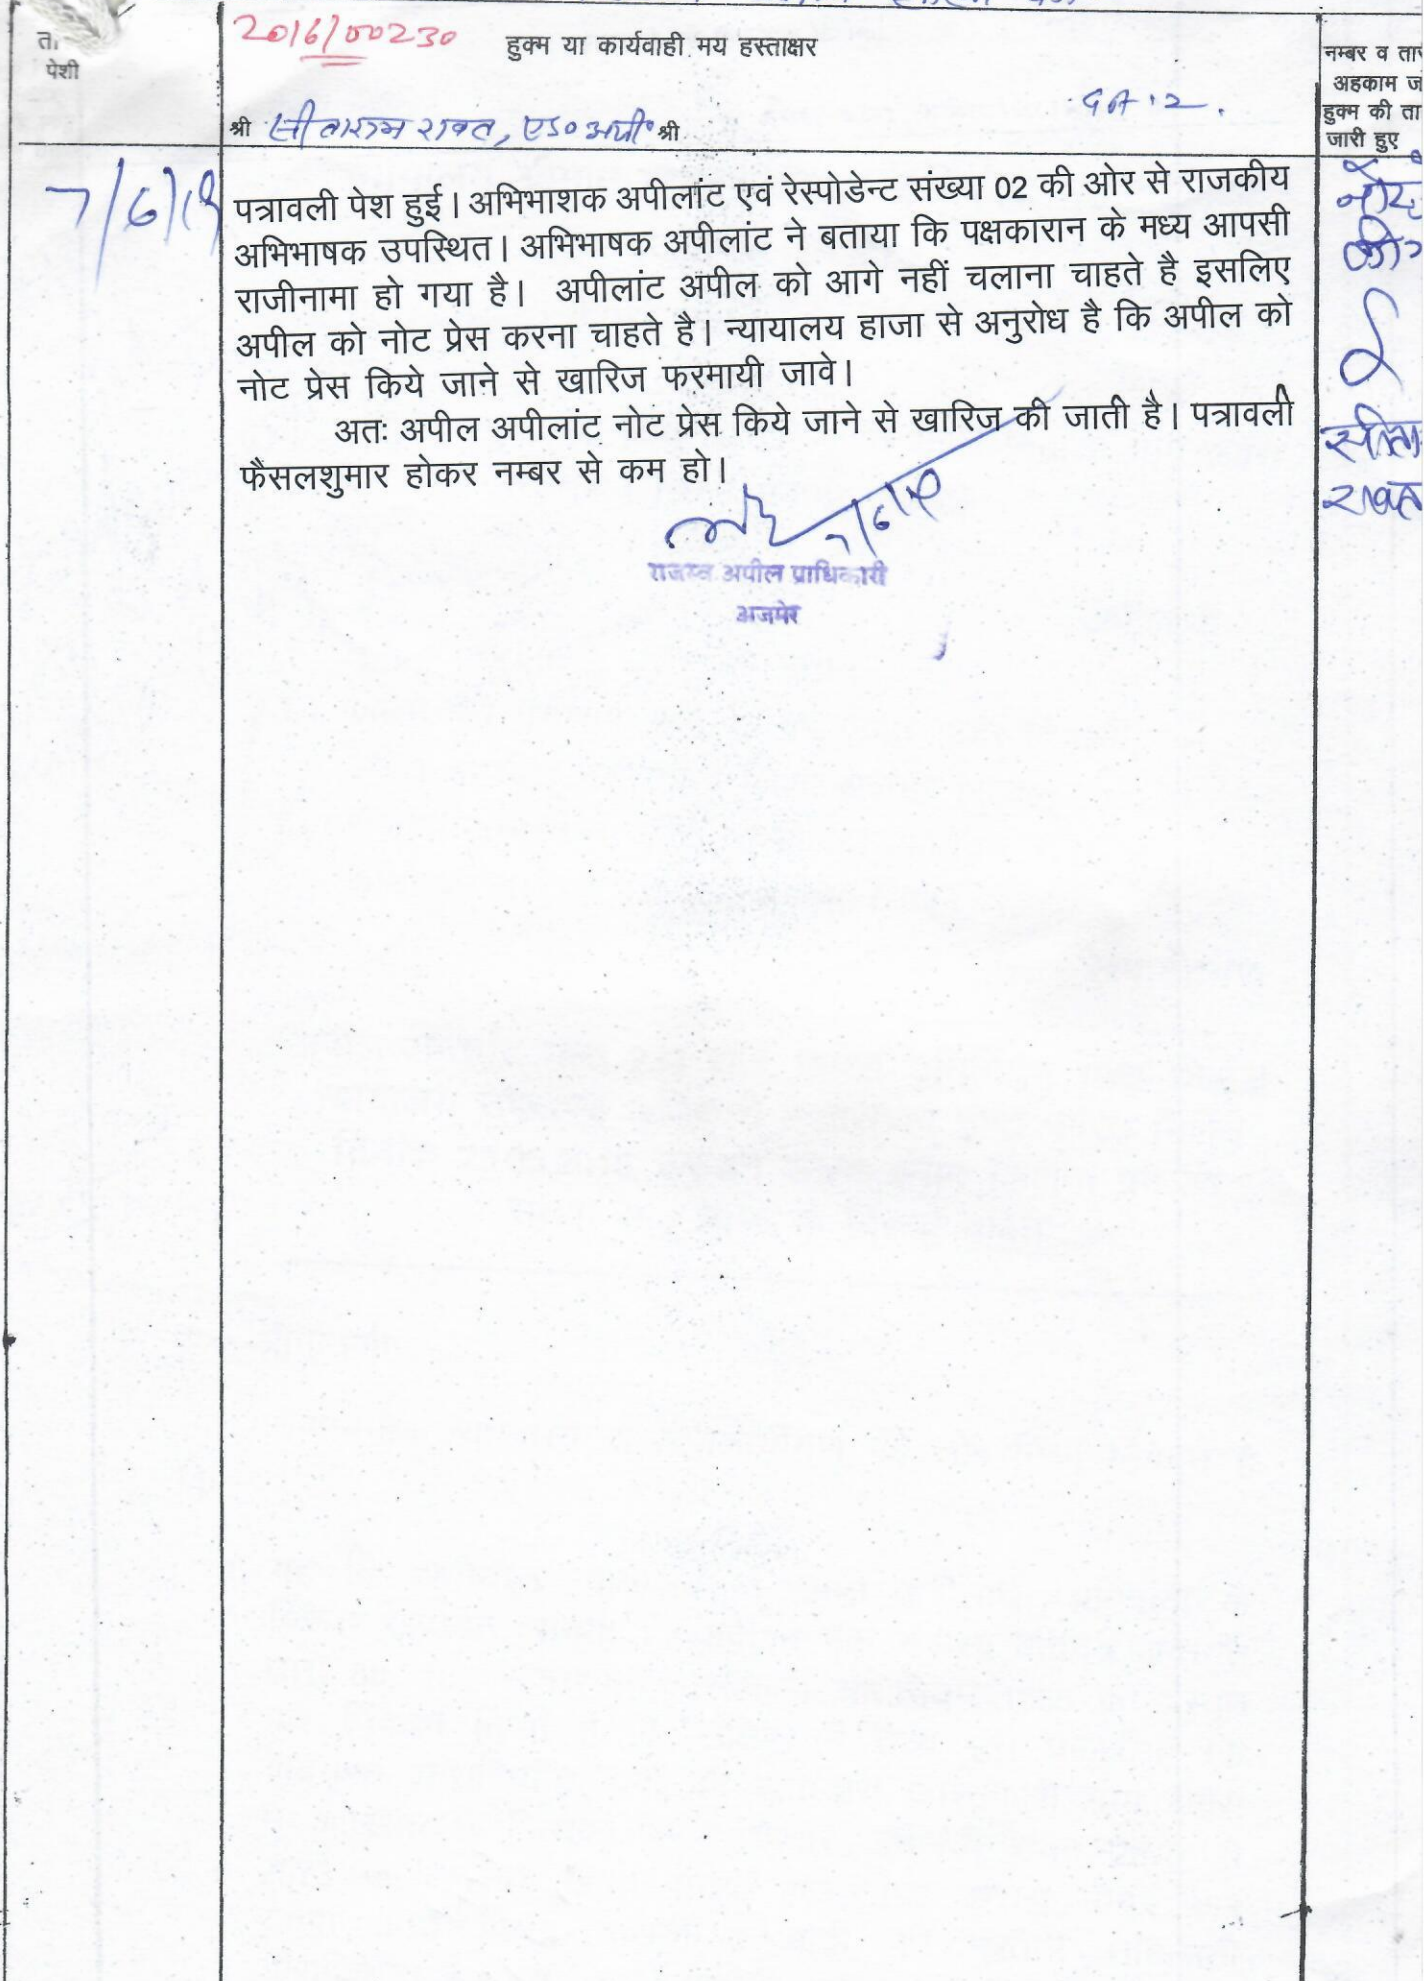 2016/00230
हुक्म या कार्यवाही मय हस्ताक्षर
पेशी
नम्बर व
अहकाम
हुक्म की
जारी हुए
श्री सीताराम रावत, एड० अपी० श्री
7/6/19
पत्रावली पेश हुई। अभिभाशक अपीलांट एवं रेस्पोडेन्ट संख्या 02 की ओर से राजकीय
अभिभाषक उपस्थित। अभिभाषक अपीलांट ने बताया कि पक्षकारान के मध्य आपसी
राजीनामा हो गया है। अपीलांट अपील को आगे नहीं चलाना चाहते है इसलिए
अपील को नोट प्रेस करना चाहते है। न्यायालय हाजा से अनुरोध है कि अपील को
नोट प्रेस किये जाने से खारिज फरमायी जावे।
अतः अपील अपीलांट नोट प्रेस किये जाने से खारिज की जाती है। पत्रावली
फैंसलशुमार होकर नम्बर से कम हो।
राजस्व अपील प्राधिकारी
अजमेर
रावत